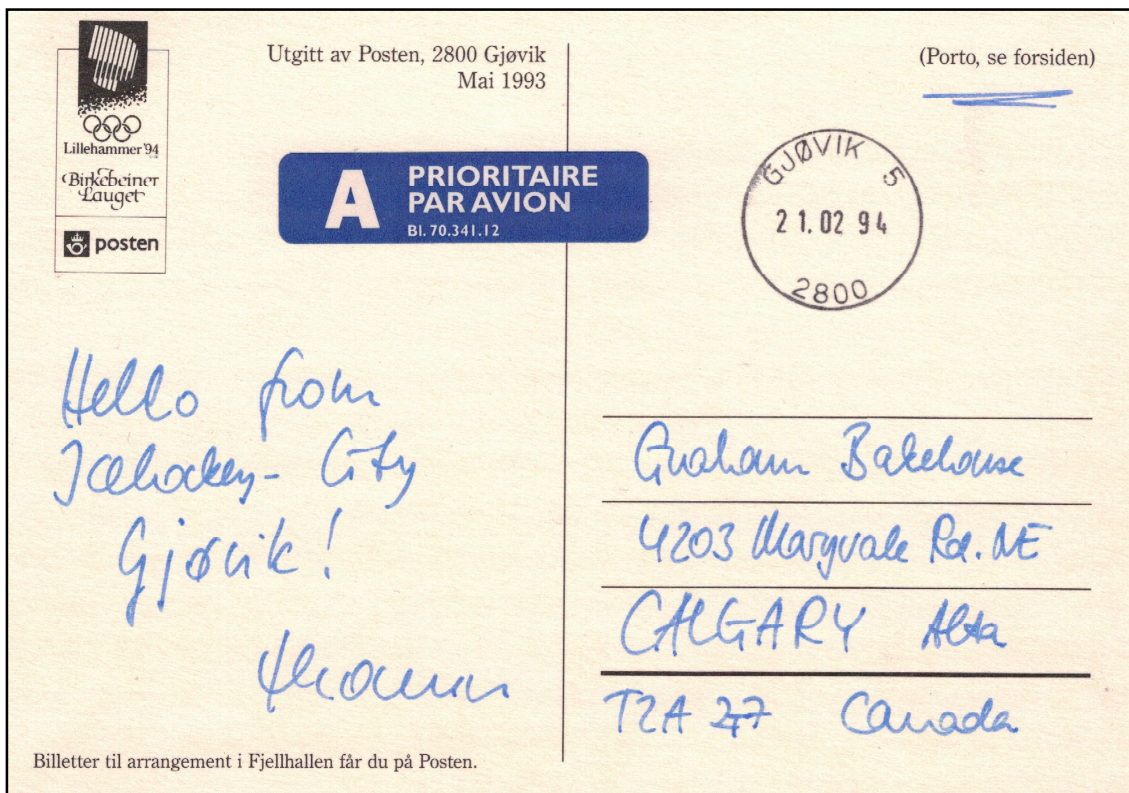 Lillehammer '94
Birkebeiner
Lauget
posten
Utgitt av Posten, 2800 Gjøvik
Mai 1993
A PRIORITAIRE
PAR AVION
Bl. 70.341.12
(Porto, se forsiden)
GJØVIK 5
21.02 94
2800
Hello from
Icehockey-City
Gjøvik!
Graham Bakehouse
4203 Maryvale Rd. NE
CALGARY Alta
T2A Canada
Billetter til arrangement i Fjellhallen får du på Posten.